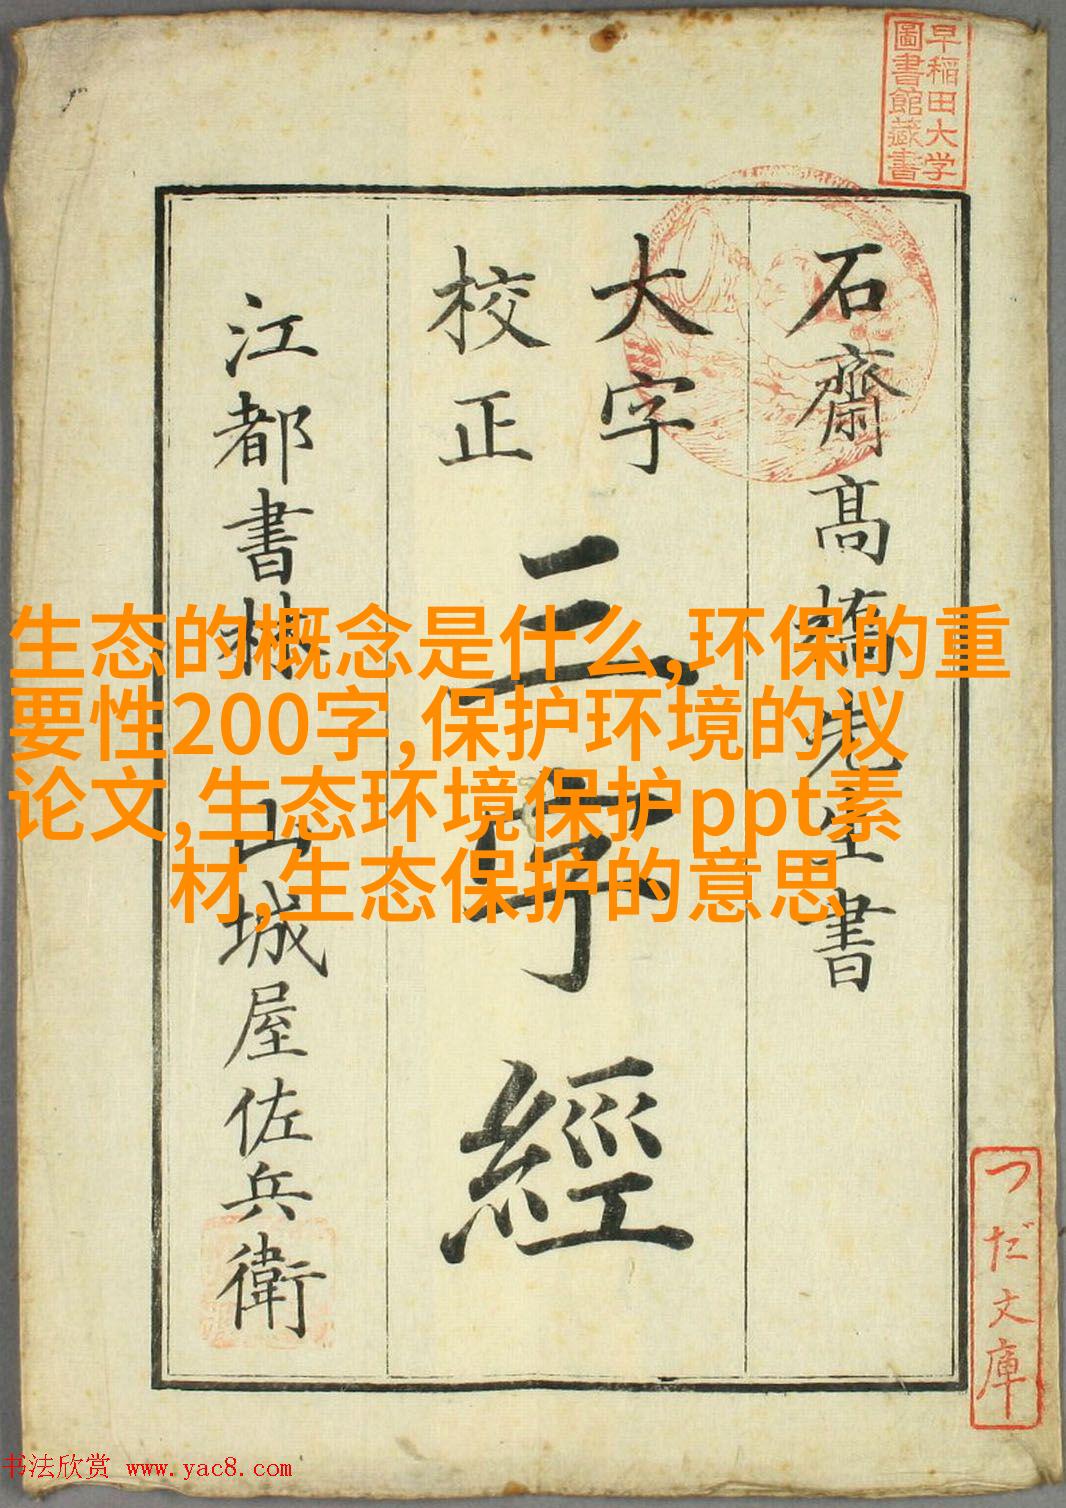 早稲田大学
圖書館藏書
石齋髙橋先生書
大字
校正
三字經
江都書林 山城屋佐兵衛
生态的概念是什么,环保的重
要性200字,保护环境的议
论文,生态环境保护ppt素
材,生态保护的意思
つだ文庫
书法欣赏 www.yac8.com